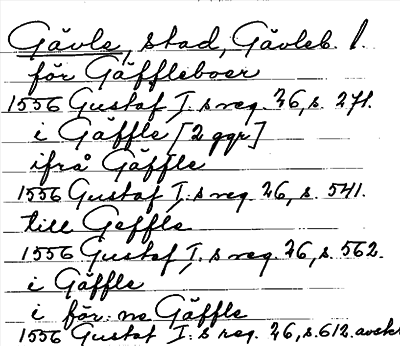 Gävle, stad, Gävleb. l.
för Gäffleboer
1556 Gustaf I.s reg. 26, s. 271.
i Gäffle [2 ggr]
ifrå Gäffle
1556 Gustaf I.s reg. 26, s. 541.
till Geffle
1556 Gustaf I.s reg. 26, s. 562.
i Gäffle
i för:ne Gäffle
1556 Gustaf I.s reg. 26, s. 612.